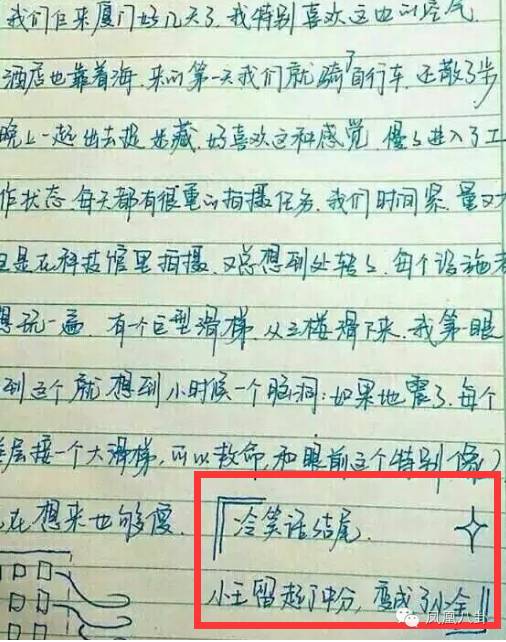 我们任来厦门好几天了.我特别喜欢这边的空气.
酒店也靠着海.来的第一天我们就骑了自行车.还散了步
晚上一起出去捉迷藏.好喜欢这种感觉 慢慢进入了工
作状态.每天都有很重的拍摄任务.我们时间紧.量又大
且是在科技馆里拍摄.又总想到处转转.每个设施都
想玩一遍.有一个巨型滑梯.从三楼滑下来.我第一眼
到这个就想到小时候一个脑洞:如果地震了.每个
层接一个大滑梯,可以救命,和眼前这个特别像)
在想来也够傻.
冷笑话结尾.
小王留起了中分,变成了小全!!
凤凰八卦